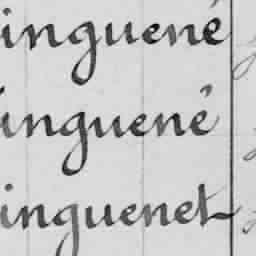 inguené
inguené
inguenet